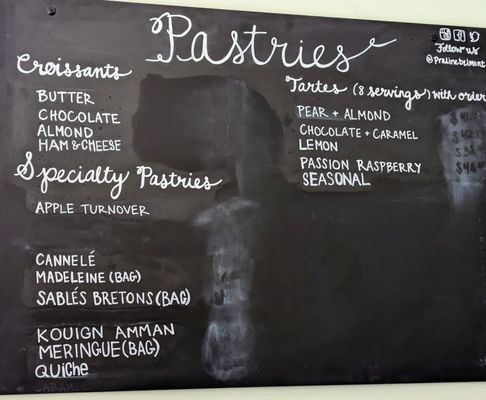 Pastries
Follow us
@Pralinebelmont
Croissants
BUTTER
CHOCOLATE
ALMOND
HAM & CHEESE
Specialty Pastries
APPLE TURNOVER
CANNELÉ
MADELEINE (BAG)
SABLÉS BRETONS (BAG)
KOUIGN AMMAN
MERINGUE (BAG)
QUiche
Tartes (8 servings) with order
PEAR + ALMOND
CHOCOLATE + CARAMEL
LEMON
PASSION RASPBERRY
SEASONAL